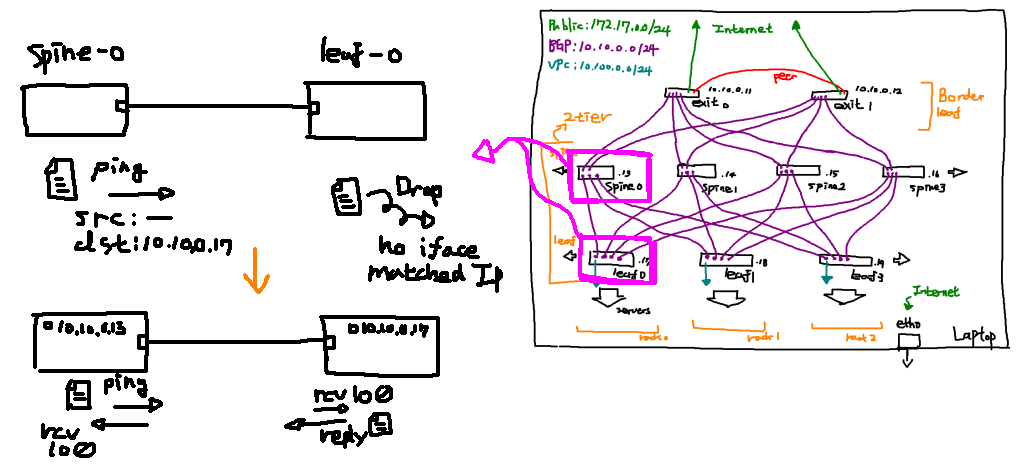 Spine-0
leaf-0
ping
src: —
dst:10.10.0.17
Drop
no iface
matched IP
10.10.0.13
10.10.0.17
ping
rcv
lo0
rcv lo0
reply
Public:172.17.0.0/24
BGP:10.10.0.0/24
VPC:10.100.0.0/24
Internet
peer
10.10.0.11
10.10.0.12
exit0
exit1
Border
leaf
2-tier
.13
.14
.15
.16
Spine0
Spine1
Spine2
Spine3
leaf
.17
.18
.19
leaf0
leaf1
leaf3
servers
rack0
rack1
rack2
Internet
eth0
Laptop